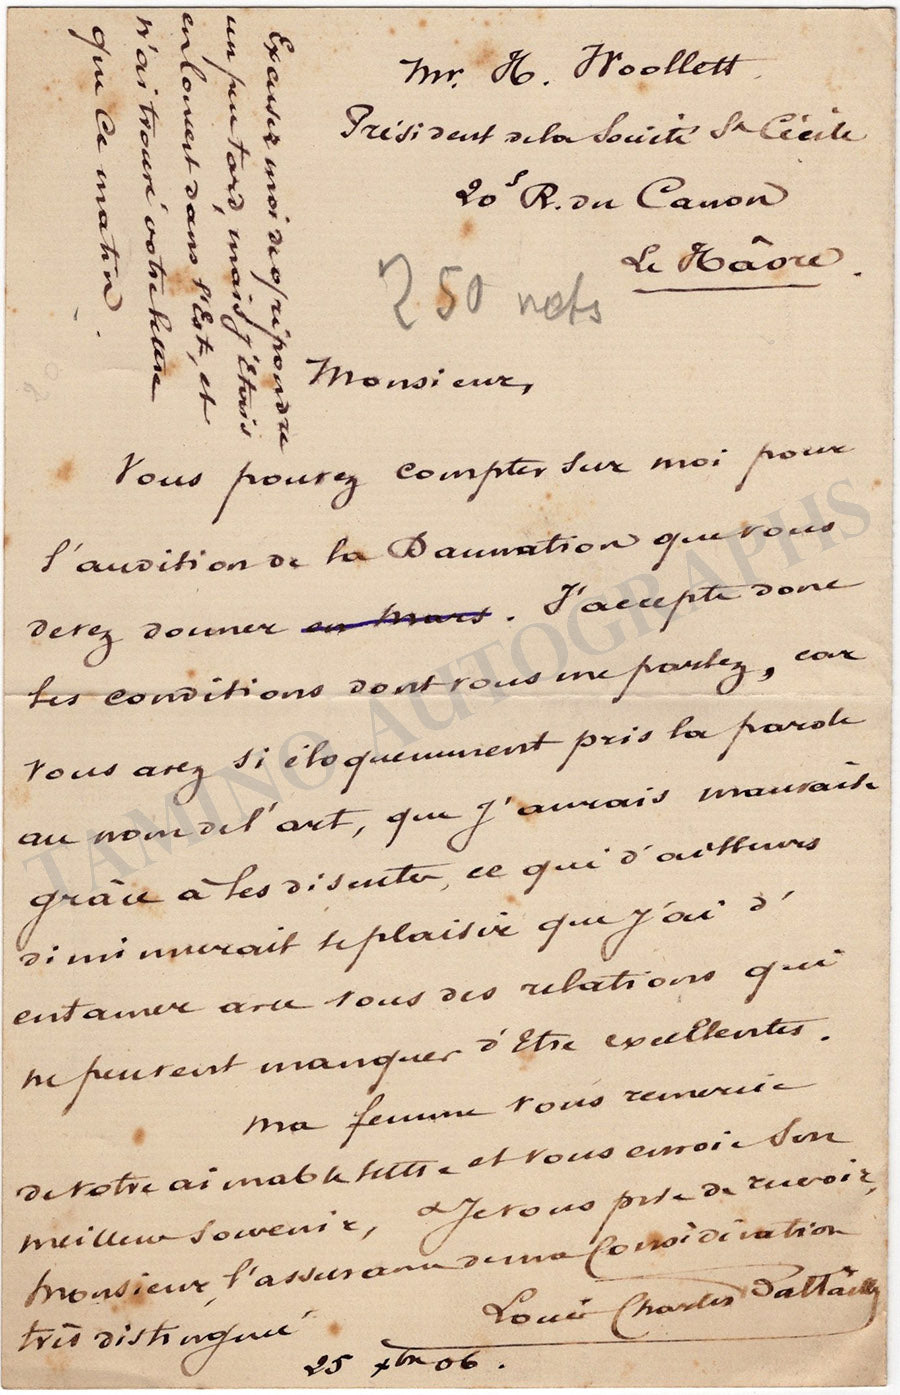 Mr. H. Woollett
Président de la Société Ste Cécile
20s R. du Canon
Le Hâvre.
250 nets
Monsieur,
Vous pouvez compter sur moi pour
l'audition de la Damnation que vous
devez donner en Mars. J'accepte donc
les conditions dont vous me parlez, car
vous avez si éloquemment pris la parole
au nom de l'art, que j'aurais mauvaise
grâce à les discuter, ce qui d'ailleurs
diminuerait le plaisir que j'ai d'
entamer avec vous des relations qui
ne peuvent manquer d'être excellentes.
Ma femme vous remercie
de votre aimable lettre et vous envoie son
meilleur souvenir, & Je vous prie de recevoir,
Monsieur, l'assurance de ma Considération
très distinguée
Louis Charles Battaille
25 xbre 06.
Excusez moi de répondre
un peu tard, mais j'étais
en tournée dans l'Est, et
n'ai trouvé votre lettre
que ce matin.
TAMINO AUTOGRAPHS